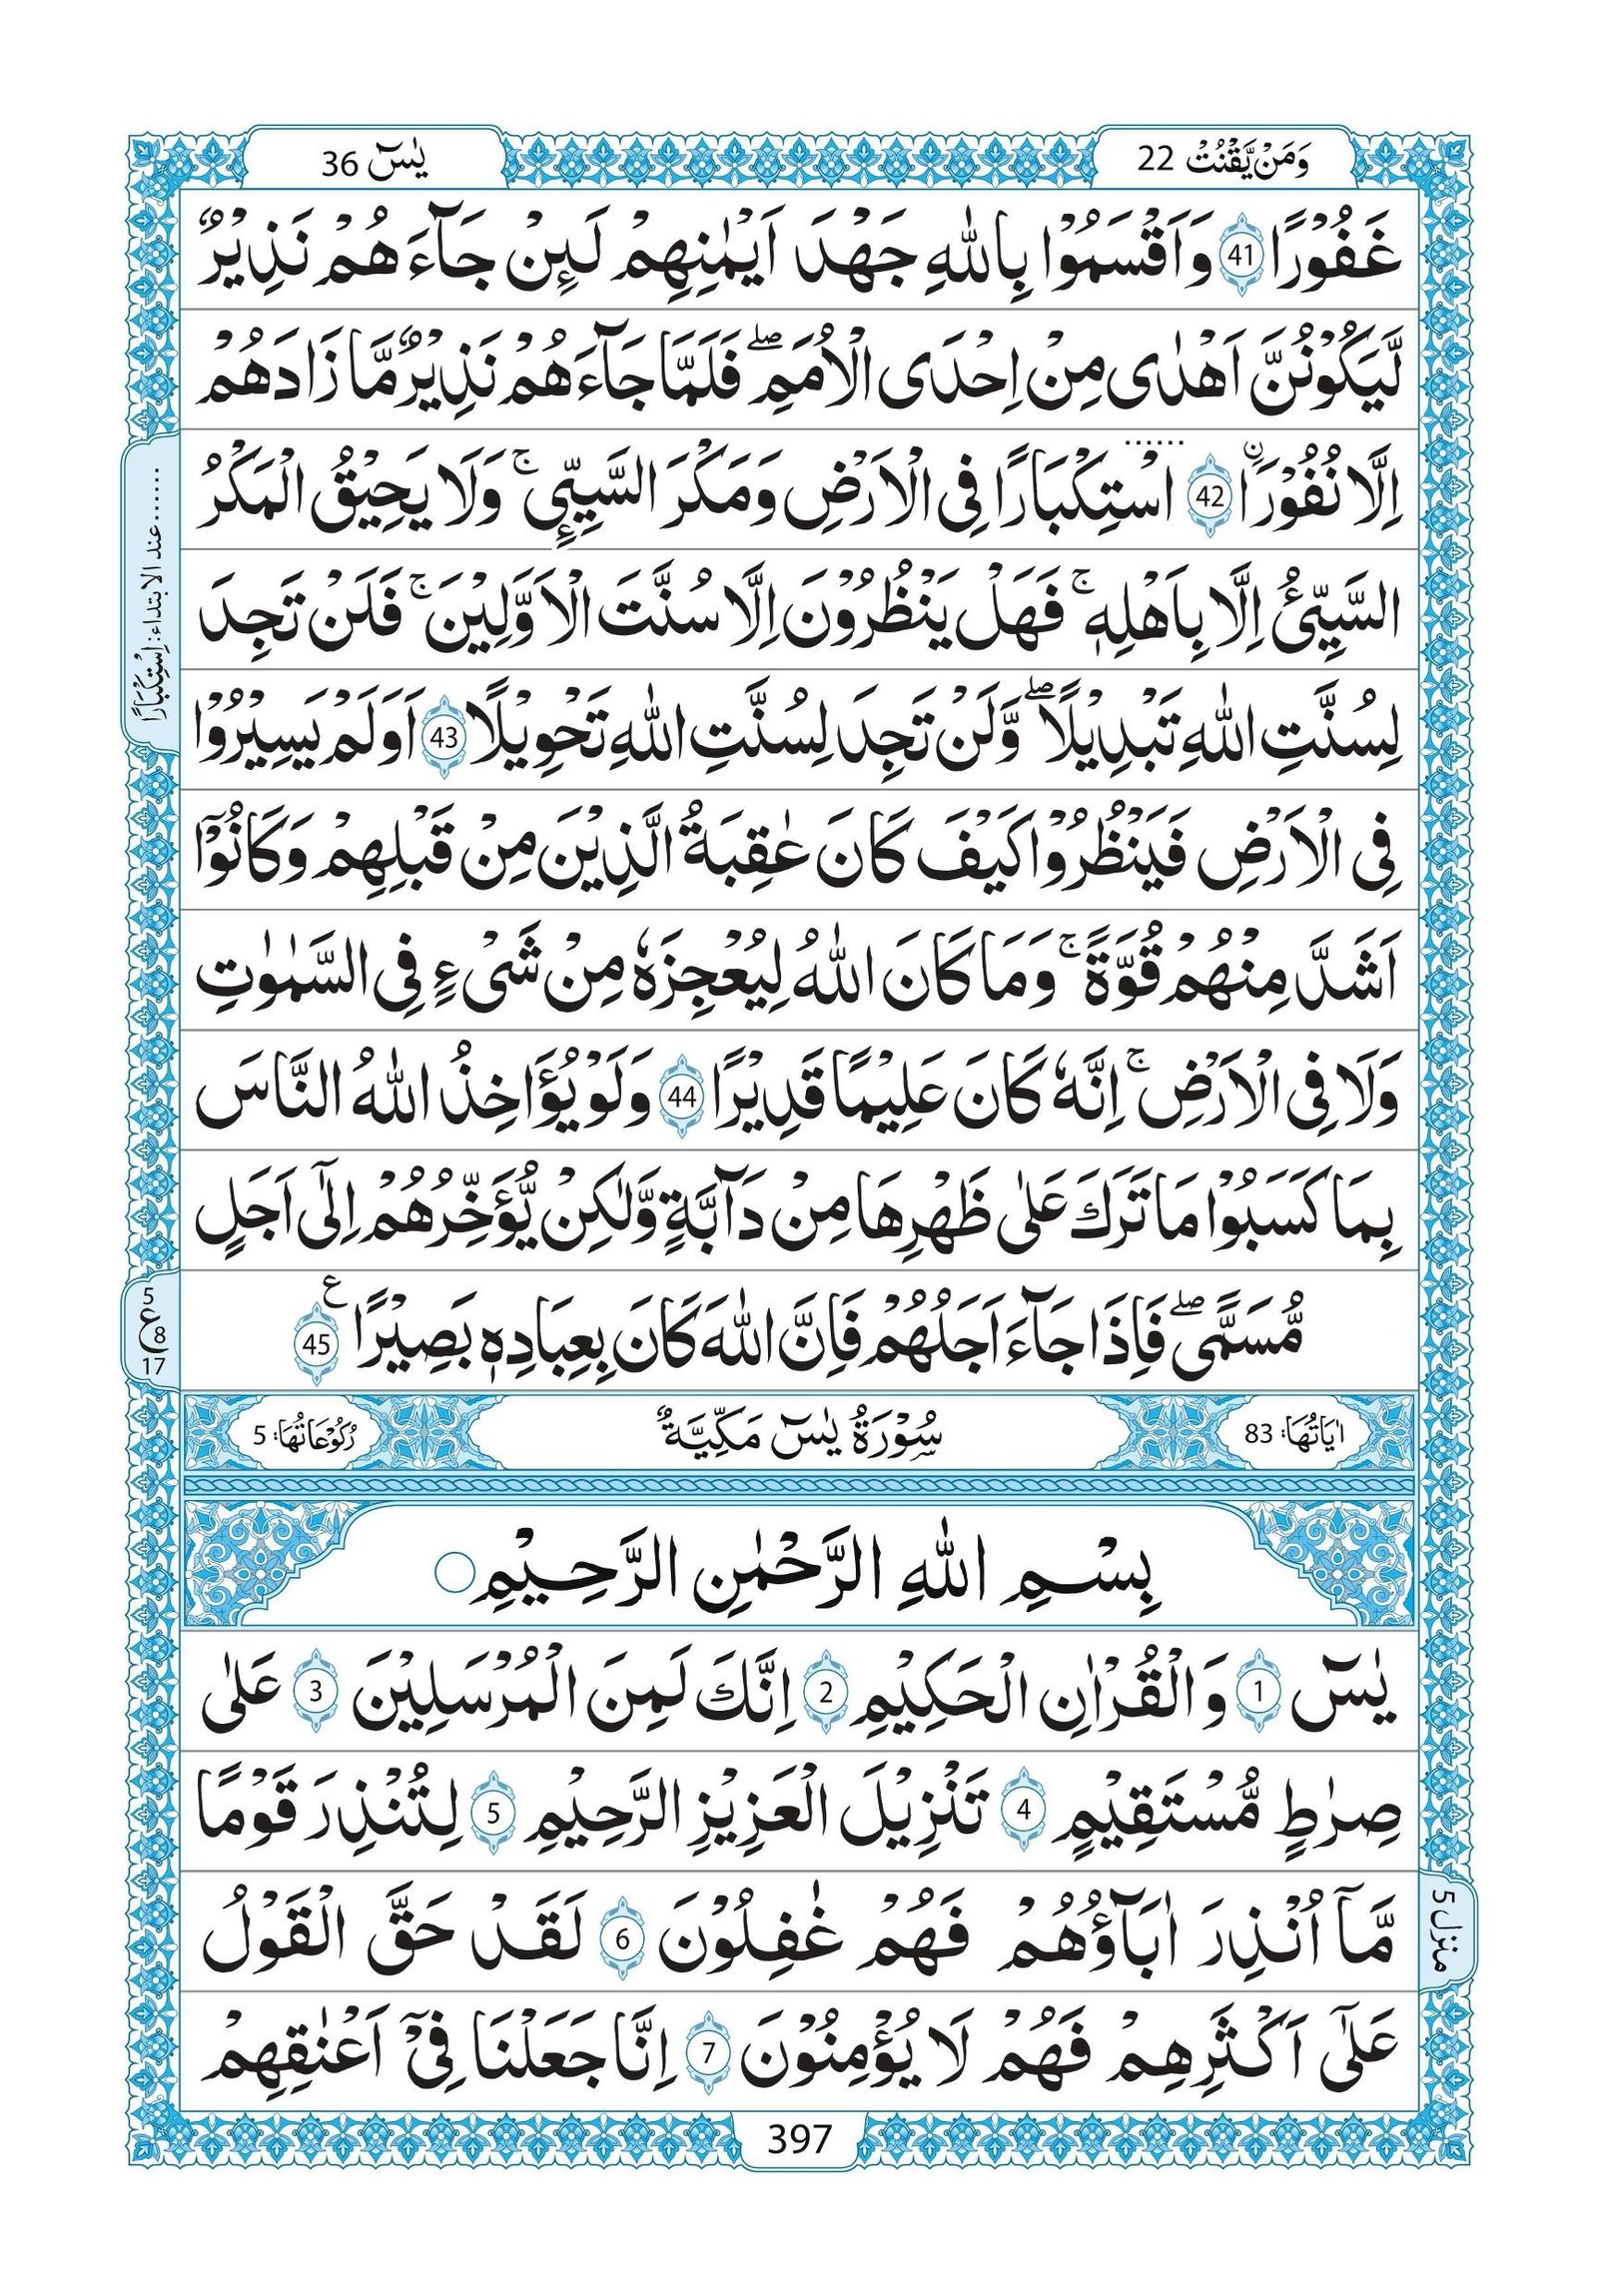 وَمَنْ یَّقْنُتْ 22
یٰسٓ 36
غَفُوْرًا 41 وَاَقْسَمُوْا بِاللّٰهِ جَهْدَ اَیْمٰنِهِمْ لَىِٕنْ جَآءَهُمْ نَذِیْرٌ
لَّیَكُوْنُنَّ اَهْدٰی مِنْ اِحْدَی الْاُمَمِ ۖ فَلَمَّا جَآءَهُمْ نَذِیْرٌ مَّا زَادَهُمْ
اِلَّا نُفُوْرَاۨ 42 اسْتِكْبَارًا فِی الْاَرْضِ وَمَكْرَ السَّیِّئِ ۚ وَلَا یَحِیْقُ الْمَكْرُ
السَّیِّئُ اِلَّا بِاَهْلِهٖ ۚ فَهَلْ یَنْظُرُوْنَ اِلَّا سُنَّتَ الْاَوَّلِیْنَ ۚ فَلَنْ تَجِدَ
لِسُنَّتِ اللّٰهِ تَبْدِیْلًا ۖ وَّلَنْ تَجِدَ لِسُنَّتِ اللّٰهِ تَحْوِیْلًا 43 اَوَلَمْ یَسِیْرُوْا
فِی الْاَرْضِ فَیَنْظُرُوْا كَیْفَ كَانَ عٰقِبَةُ الَّذِیْنَ مِنْ قَبْلِهِمْ وَكَانُوْۤا
اَشَدَّ مِنْهُمْ قُوَّةً ۚ وَمَا كَانَ اللّٰهُ لِیُعْجِزَهٗ مِنْ شَیْءٍ فِی السَّمٰوٰتِ
وَلَا فِی الْاَرْضِ ۚ اِنَّهٗ كَانَ عَلِیْمًا قَدِیْرًا 44 وَلَوْ یُؤَاخِذُ اللّٰهُ النَّاسَ
بِمَا كَسَبُوْا مَا تَرَكَ عَلٰی ظَهْرِهَا مِنْ دَآبَّةٍ وَّلٰكِنْ یُّؤَخِّرُهُمْ اِلٰۤی اَجَلٍ
مُّسَمًّی ۖ فَاِذَا جَآءَ اَجَلُهُمْ فَاِنَّ اللّٰهَ كَانَ بِعِبَادِهٖ بَصِیْرًا ع 45
اٰیَاتُهَا: 83
سُوْرَةُ یٰسٓ مَكِّیَّةٌ
رُكُوْعَاتُهَا: 5
بِسْمِ اللّٰهِ الرَّحْمٰنِ الرَّحِیْمِ
یٰسٓ 1 وَالْقُرْاٰنِ الْحَكِیْمِ 2 اِنَّكَ لَمِنَ الْمُرْسَلِیْنَ 3 عَلٰی
صِرٰطٍ مُّسْتَقِیْمٍ 4 تَنْزِیْلَ الْعَزِیْزِ الرَّحِیْمِ 5 لِتُنْذِرَ قَوْمًا
مَّاۤ اُنْذِرَ اٰبَآؤُهُمْ فَهُمْ غٰفِلُوْنَ 6 لَقَدْ حَقَّ الْقَوْلُ
عَلٰۤی اَكْثَرِهِمْ فَهُمْ لَا یُؤْمِنُوْنَ 7 اِنَّا جَعَلْنَا فِیْۤ اَعْنٰقِهِمْ
...... عند الابتداء: اِسْتِكْبَارًا
5
ع 8
17
منزل 5
397